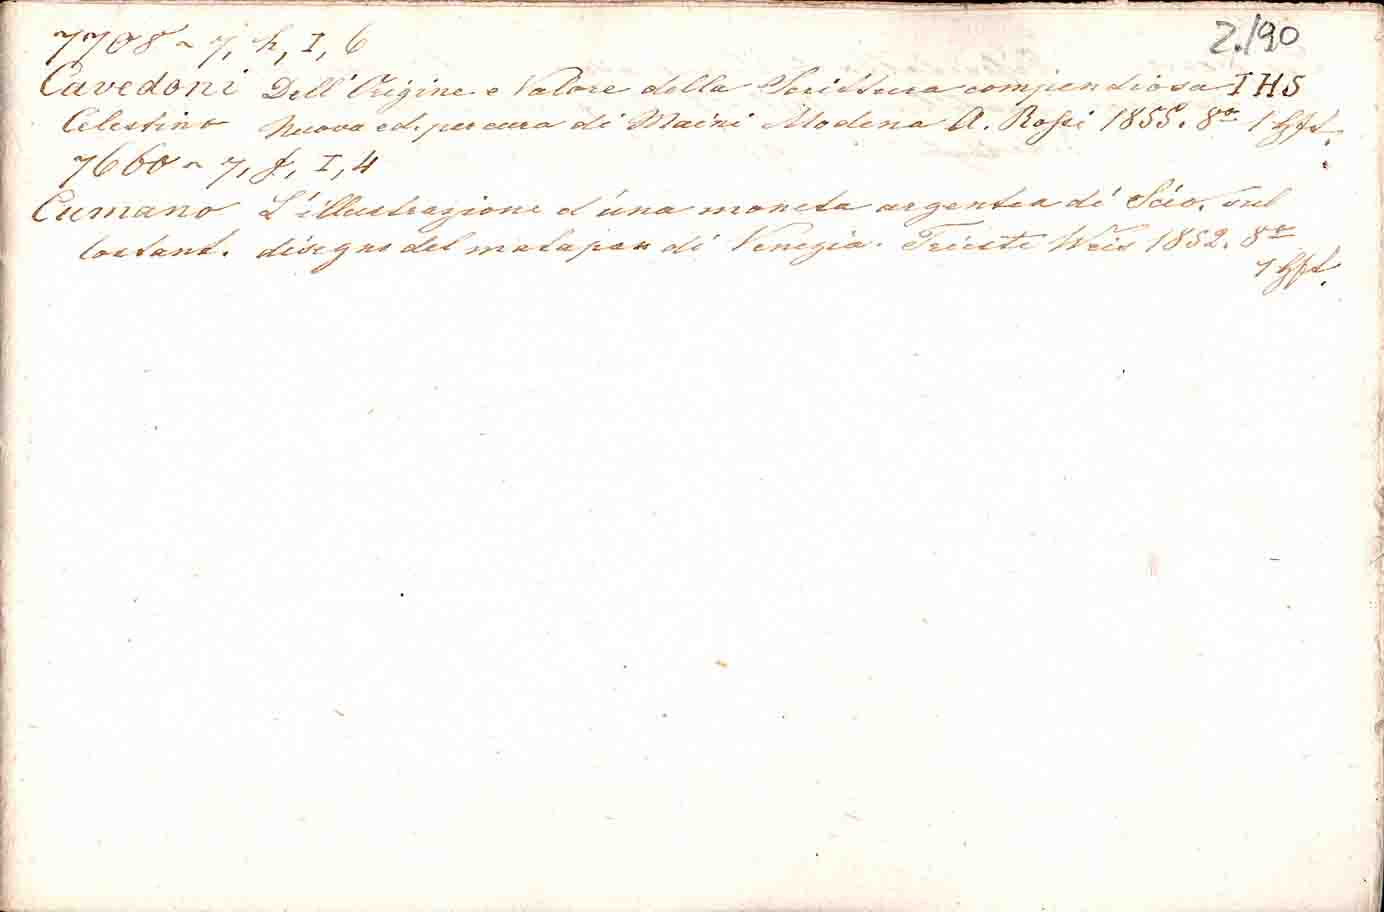 2./90
7708 ~ 7, h, I, 6
Cavedoni Dell'Origine e Valore della Scrittura compendiosa IHS
Celestino Nuova ed. per cura di Maini Modena A. Rossi 1855. 8º 1 Hft.
7660 ~ 7, f, I, 4
Cumano L'illustrazione d'una moneta argentea di Scio. sul
Costant. disegno del matapan di Venezia. Trieste Weis 1852. 8º
1 Hft.